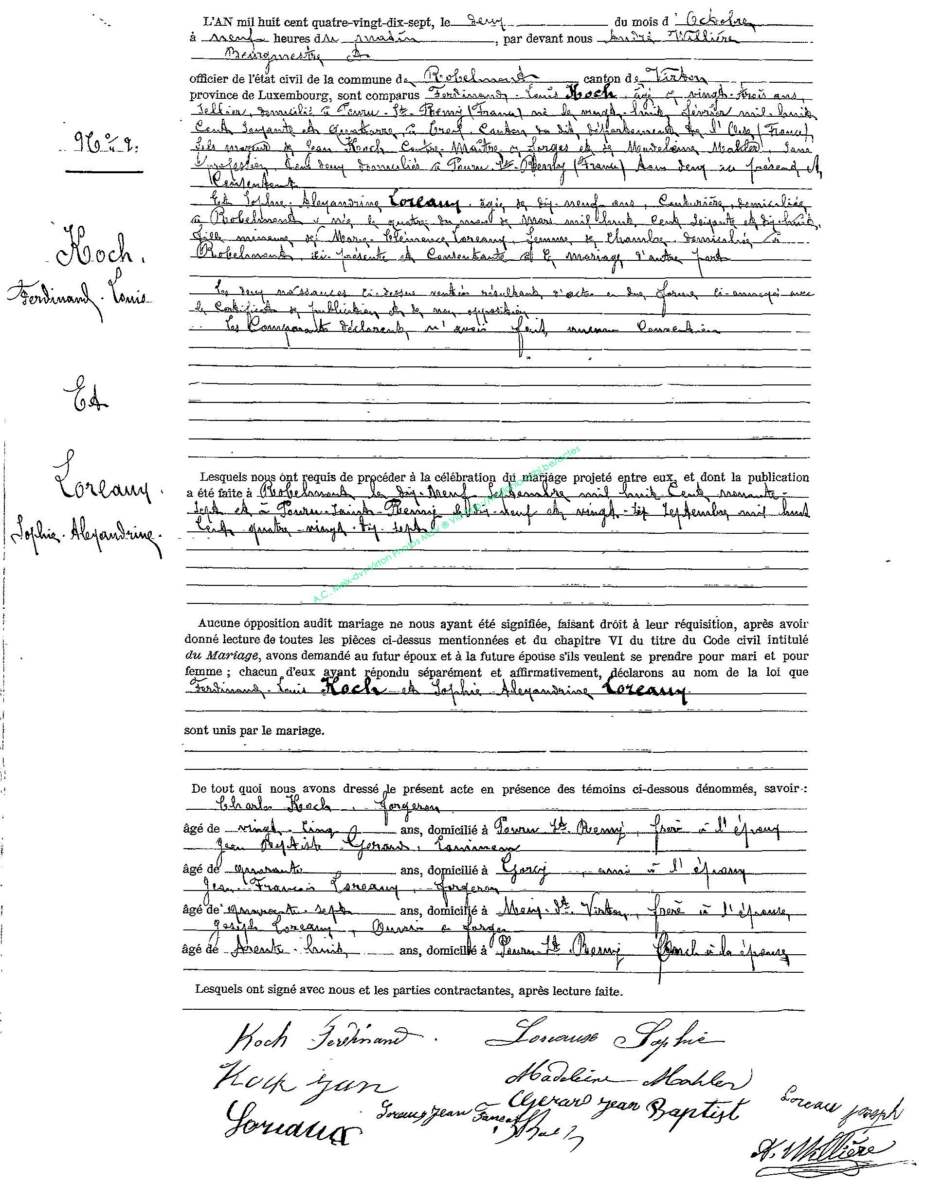 L'AN mil huit cent quatre-vingt-dix-sept, le deux du mois d'Octobre
à neuf heures du matin, par devant nous André Willière
Bourgmestre
officier de l'état civil de la commune de Robelmont canton de Virton
province de Luxembourg, sont comparus Ferdinand-Louis Koch, âgé de vingt-trois ans,
Sellier, domicilié à Pouru-St-Remy (France) né le vingt-huit février mil huit
Cent soixante et quatorze, à Creil, Canton du dit, département de l'Oise (France)
fils majeur de Jean Koch Contre-Maître de forges et de Madeleine Mahler, sans
profession, tous deux domiciliés à Pouru-St-Remy (France) tous deux ici présents et
Consentant
Et Sophie-Alexandrine Loreaux, âgée de dix-neuf ans, Couturière, domiciliée
à Robelmont, y née le quatre du mois de Mars mil huit Cent soixante et dix-huit,
fille mineure de Marie-Clémence Loreaux, femme de Chambre domiciliée à
Robelmont, ici présente et Consentante d'autre part
Les deux naissances ci-dessus résultent d'actes en due forme ci-annexés avec
les certificats de publication et de non opposition
Les Comparants déclarent n'avoir fait aucune Convention
N° 9.
Koch.
Ferdinand-Louis
Et
Loreaux.
Sophie-Alexandrine.
Lesquels nous ont requis de procéder à la célébration du mariage projeté entre eux, et dont la publication
a été faite à Robelmont le dix-neuf septembre mil huit Cent nonante-
sept et à Pouru-Saint-Remy le dix-neuf et vingt-six septembre mil huit
Cent quatre-vingt-dix-sept
A.C. Meix-dvt-Virton
Aucune opposition audit mariage ne nous ayant été signifiée, faisant droit à leur réquisition, après avoir
donné lecture de toutes les pièces ci-dessus mentionnées et du chapitre VI du titre du Code civil intitulé
du Mariage, avons demandé au futur époux et à la future épouse s'ils veulent se prendre pour mari et pour
femme ; chacun d'eux ayant répondu séparément et affirmativement, déclarons au nom de la loi que
Ferdinand-Louis Koch et Sophie-Alexandrine Loreaux
sont unis par le mariage.
De tout quoi nous avons dressé le présent acte en présence des témoins ci-dessous dénommés, savoir :
Charles Koch, forgeron
âgé de vingt-cinq ans, domicilié à Pouru-St-Remy, frère à l'époux
Jean Baptiste Gerard,
âgé de quarante ans, domicilié à Gorcy, ami à l'époux
Jean-François Loreaux, forgeron
âgé de quarante-sept ans, domicilié à Meix-dt-Virton, frère à l'épouse,
Joseph Loreaux, Ouvrier de forges
âgé de trente-huit ans, domicilié à Pouru-St-Remy Oncle à la épouse
Lesquels ont signé avec nous et les parties contractantes, après lecture faite.
Koch Ferdinand. Loreaux Sophie
Kock Jan Madeleine Mahler
Gerard Jean Baptist
Loreau Joseph
Loreaux
A. Willière